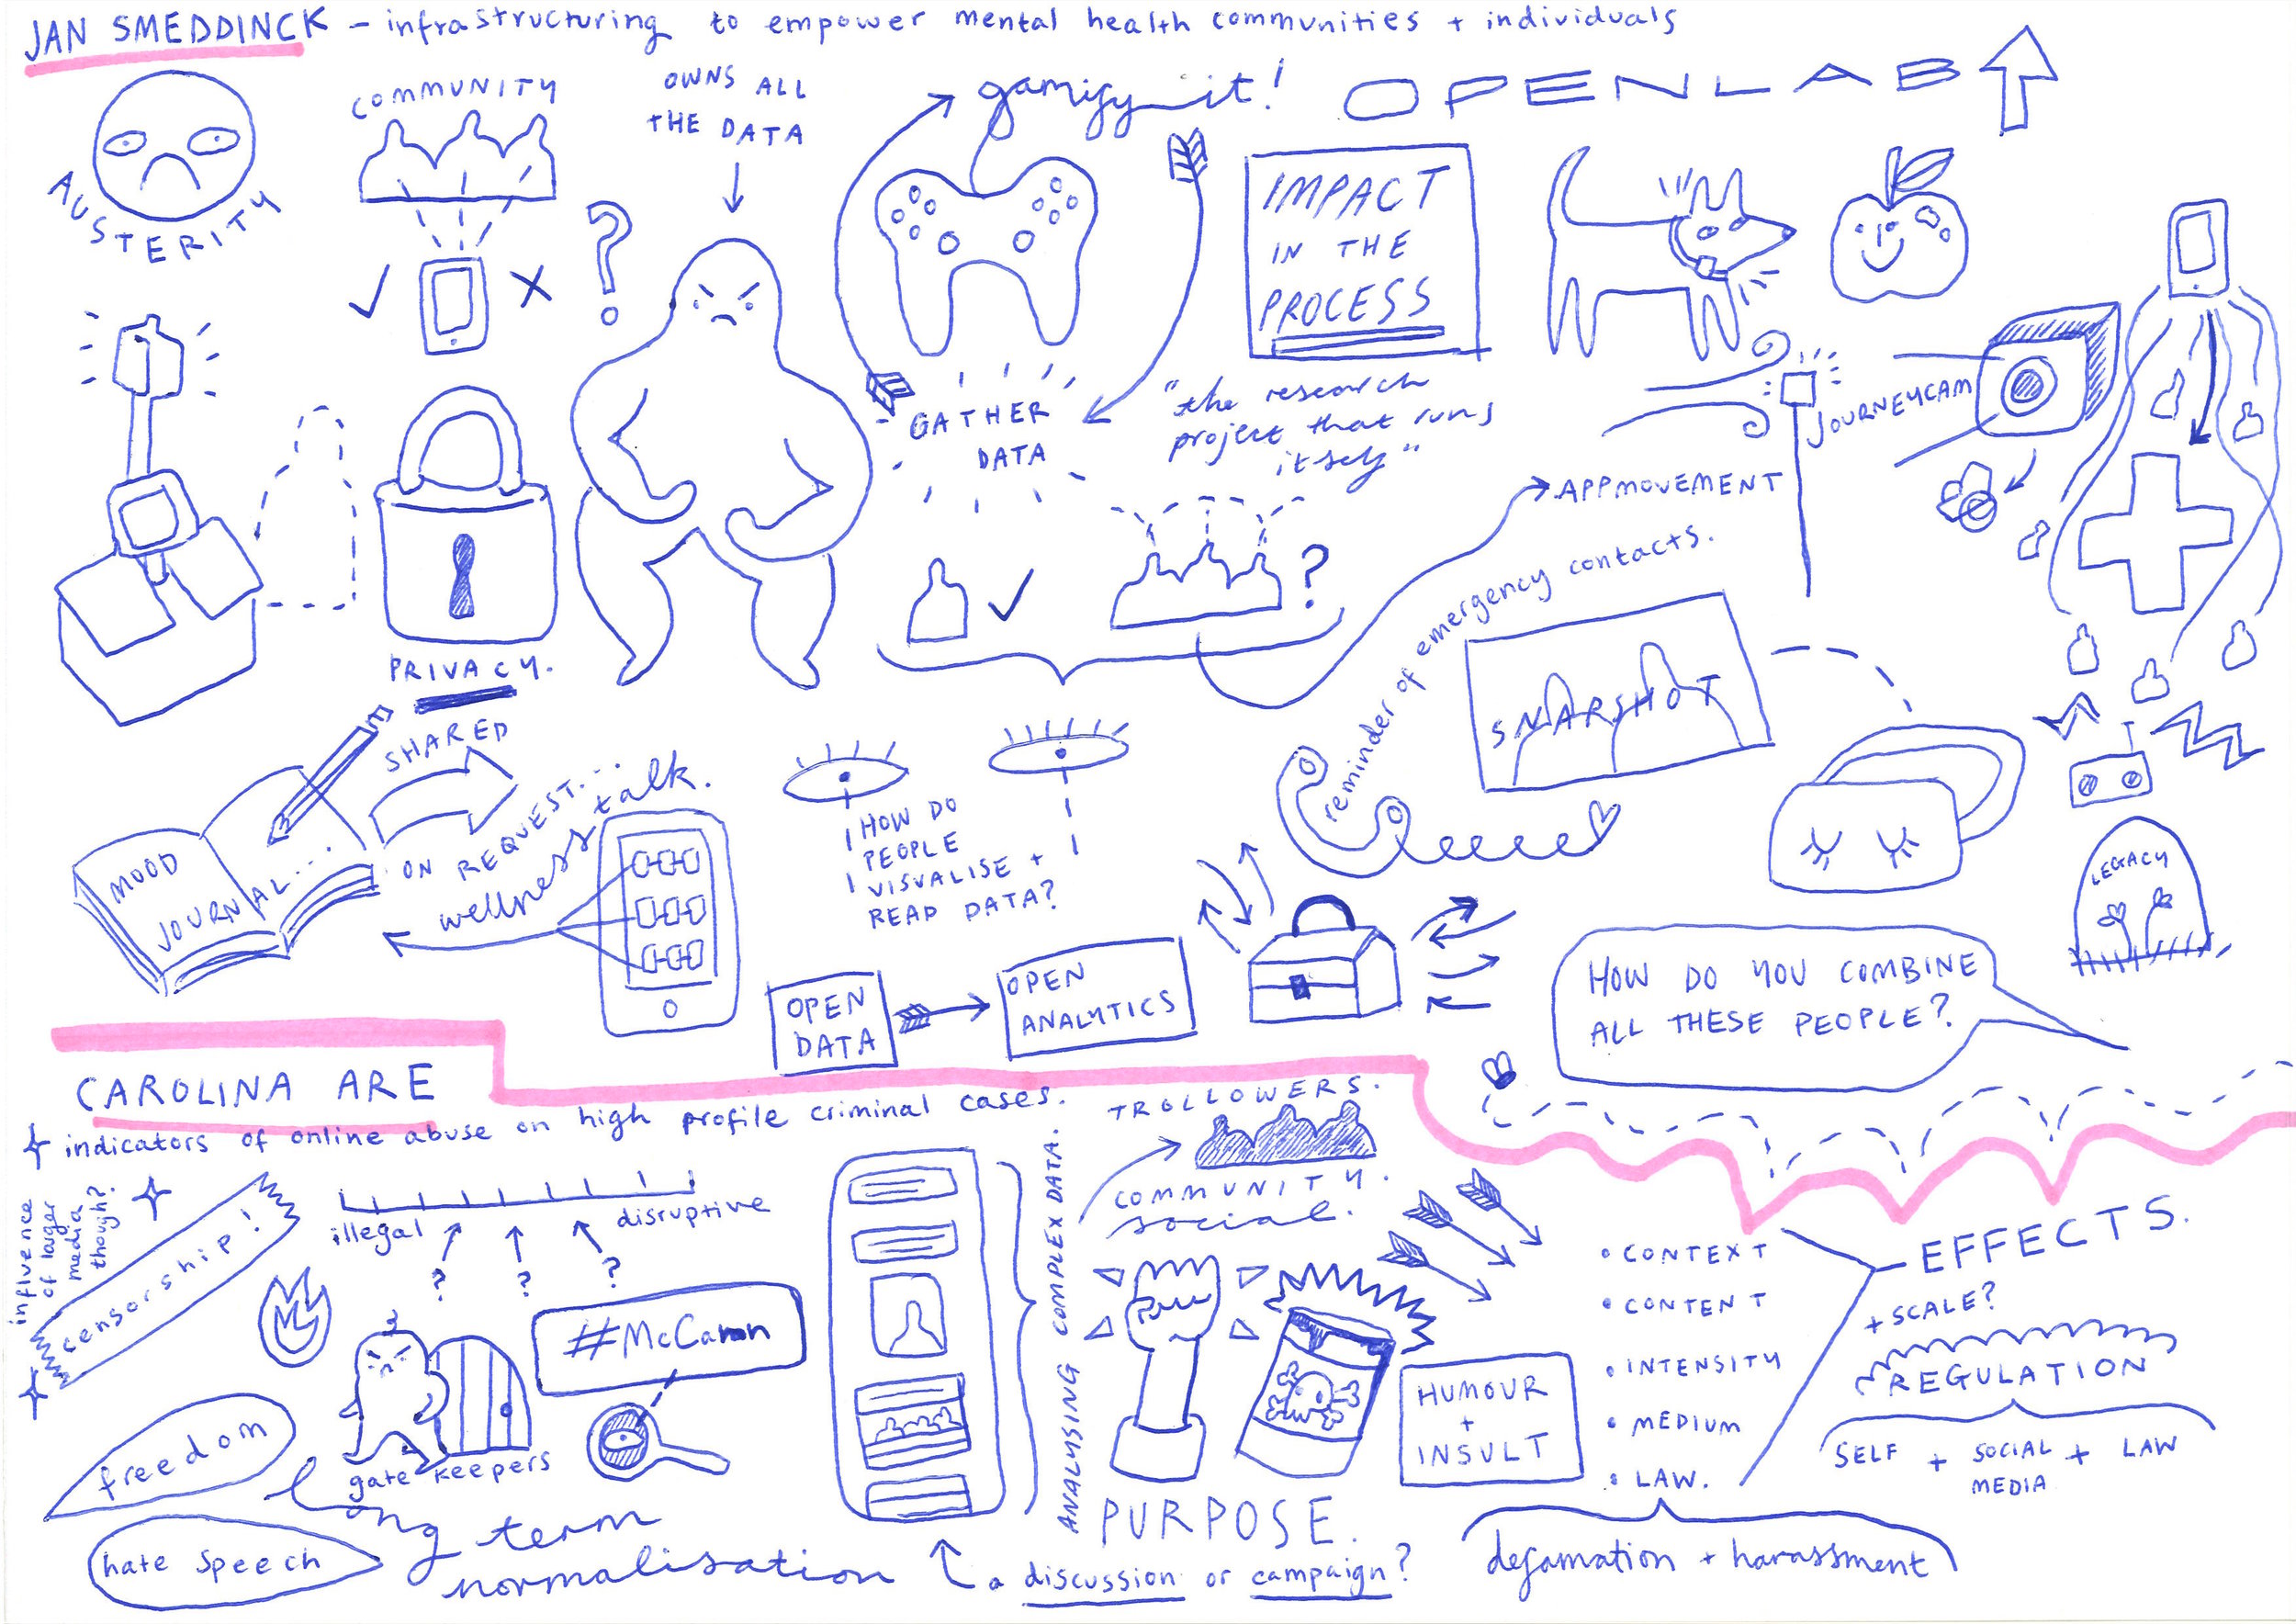 JAN SMEDDINCK – infrastructuring to empower mental health communities + individuals
AUSTERITY
COMMUNITY
OWNS ALL
THE DATA
gamify it!
OPENLAB
IMPACT
IN THE
PROCESS
?
GATHER
DATA
"the research
project that runs
itself"
JOURNEYCAM
APPMOVEMENT
?
PRIVACY.
SHARED
ON REQUEST...
MOOD
JOURNAL...
wellness talk.
HOW DO
PEOPLE
VISUALISE +
READ DATA?
reminder of emergency contacts.
SNAPSHOT
LEGACY
OPEN
DATA
OPEN
ANALYTICS
HOW DO YOU COMBINE
ALL THESE PEOPLE?
CAROLINA ARE
indicators of online abuse on high profile criminal cases.
influence
of larger
media
though?
censorship!
illegal
disruptive
? ? ?
#McCann
gate keepers
freedom
hate speech
long term
normalisation
ANALYSING COMPLEX DATA.
TROLLOWERS.
COMMUNITY.
social.
PURPOSE.
a discussion or campaign?
HUMOUR
+
INSULT
• CONTEXT
• CONTENT
• INTENSITY
• MEDIUM
• LAW.
defamation + harassment
EFFECTS.
+ SCALE?
REGULATION
SELF + SOCIAL MEDIA + LAW